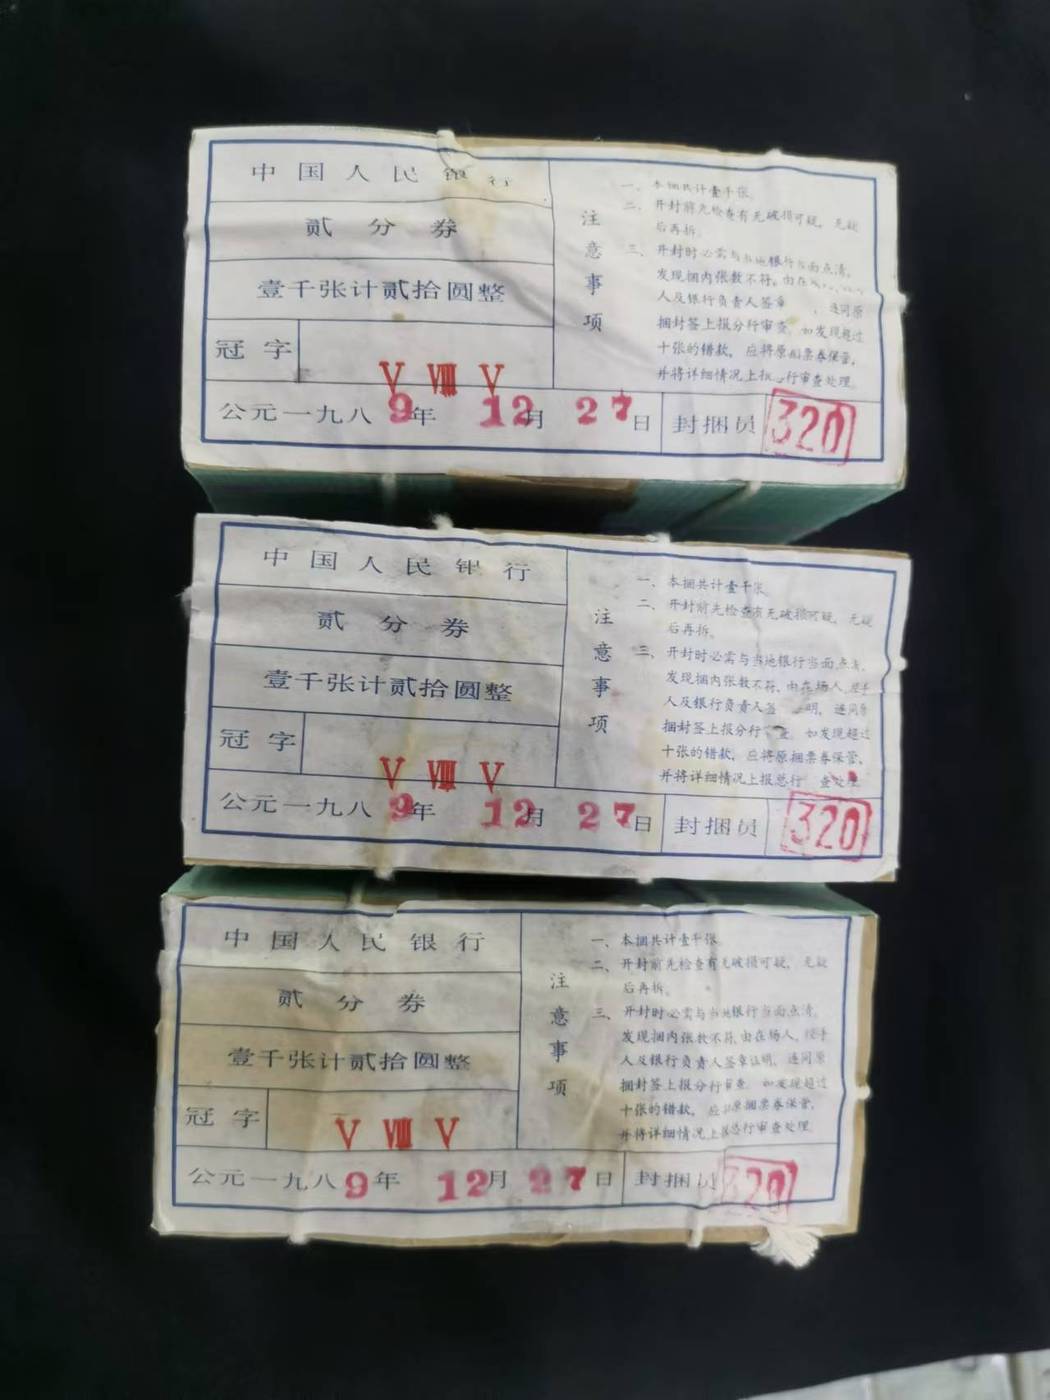 中国人民银行
贰分券
壹千张计贰拾圆整
冠字
V VIII V
公元一九八9年 12月 27日
封捆员 320
注意事项
一、本捆共计壹千张
二、开封前先检查有无破损可疑，无疑
后再拆。
三、开封时必需与当地银行当面点清，
发现捆内张数不符，由在
人及银行负责人签章 、连同原
捆封签上报分行审查，如发现超过
十张的错款，应将原捆票券保管，
并将详细情况上报 行审查处理。
中国人民银行
贰分券
壹千张计贰拾圆整
冠字
V VIII V
公元一九八9年 12月 27日
封捆员 320
注意事项
一、本捆共计壹千张
二、开封前先检查有无破损可疑，无疑
后再拆。
三、开封时必需与当地银行当面点清，
发现捆内张数不符，由在场人、经手
人及银行负责人签 明，连同原
捆封签上报分行 查，如发现超过
十张的错款，应将原捆票券保管，
并将详细情况上报总行 查处理
中国人民银行
贰分券
壹千张计贰拾圆整
冠字
V VIII V
公元一九八9年 12月 27日
封捆员 320
注意事项
一、本捆共计壹千张
二、开封前先检查有无破损可疑，无疑
后再拆。
三、开封时必需与当地银行当面点清，
发现捆内张数不符，由在场人、经手
人及银行负责人签章证明，连同原
捆封签上报分行审查，如发现超过
十张的错款，应将原捆票券保管，
并将详细情况上报总行审查处理